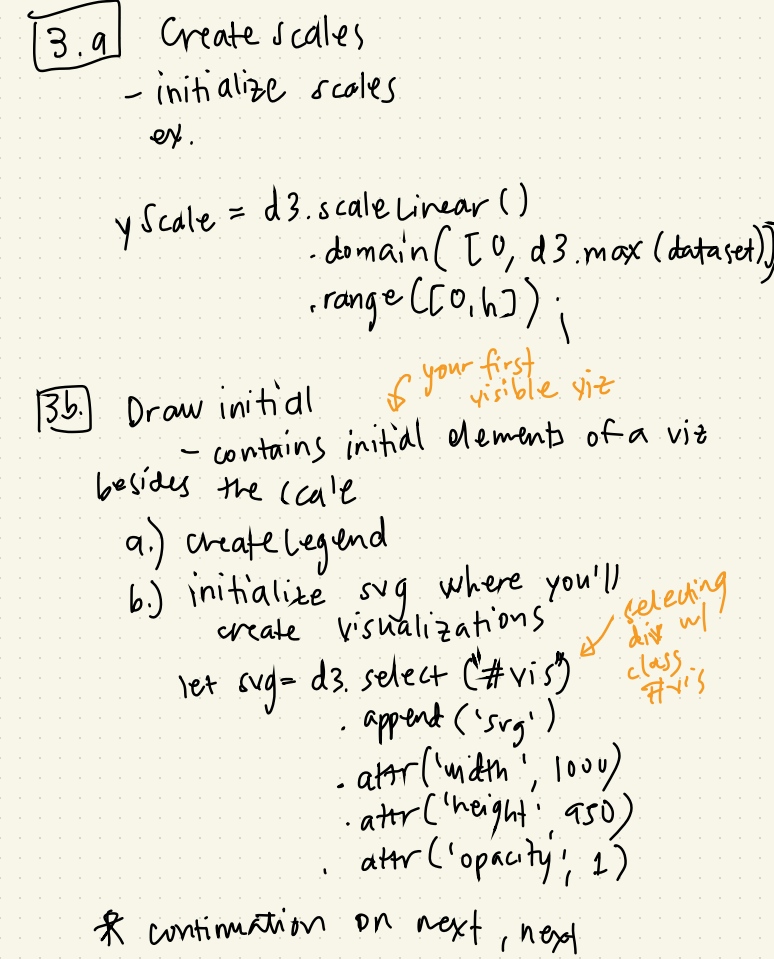 3.a Create scales
- initialize scales
ex.
yScale = d3.scaleLinear()
.domain([0, d3.max(dataset)])
.range([0,h]);
3b. Draw initial
your first
visible viz
- contains initial elements of a viz
besides the scale
a.) create legend
b.) initialize svg where you'll
create visualizations
selecting
div w/
class
#vis
let svg = d3.select("#vis")
.append('svg')
.attr('width', 1000)
.attr('height', 950)
.attr('opacity', 1)
* continuation on next, next